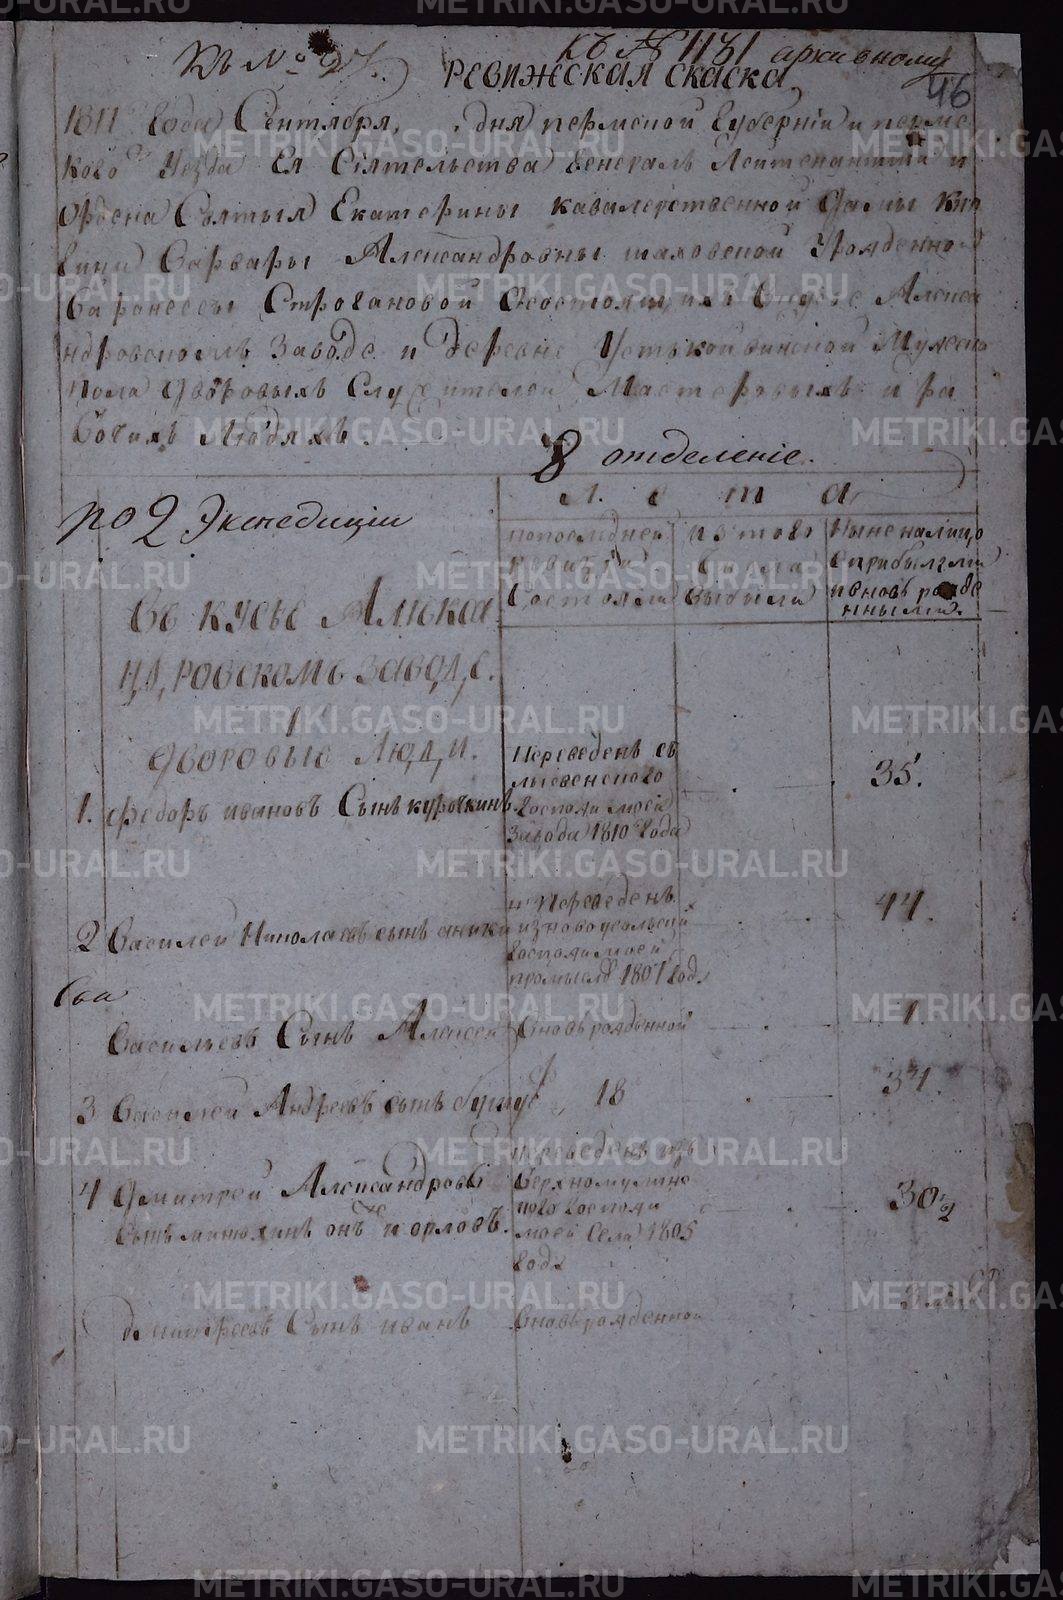 Къ № 27.
къ № 1131 архивному
Ревижская скаска
46
1811 Года Сентября, дня пермской Губернiи и перм
скаго Уезда Ея Сiятельства Генералъ Лейтенантши и
Ордена Святыя Екатерины кавалерственной Дамы Кня
гини Варвары Александровны шаховской Урожденной
Баронессы Строгановой О состоящихъ в кусье Алекса
ндровскомъ Заводе и Деревне Устькойвинской Мужеска
пола Дворовыхъ Служителей, Мастеровыхъ и ра
бочихъ Людяхъ.
8 отделенiе.
по 2 Экспедицiи
Л е т а
попоследней ревизiи состояли
изтого числа выбыли
Ныне налицо сприбылыми ивновь рожде нными.
Въ кусье Алекса
ндровскомъ заводе.
Дворовые Люди.
1. Федоръ ивановъ Сынъ курочкинъ
Переведенъ съ
лысвенского
Госпожи моей
Завода 1810 Года
35.
2 Василей Николаевъ сынъ аники
переведенъ
изновоусольскихъ
Госпожи моей
промысловъ 1807 год.
44.
ева
Васильевъ Сынъ Алексей
вновь рожденной
1.
3 Василей Андреевъ сынъ
18
34.
4 Дмитрей Александровъ
Сынъ митюхинъ онъ и орловъ.
переведенъ изъ
верхнемуллинс
кого Госпожи
моей Села 1805
Года
30 1/2
дмитреевъ Сынъ иванъ
вновь рожденной
METRIKI.GASO-URAL.RU